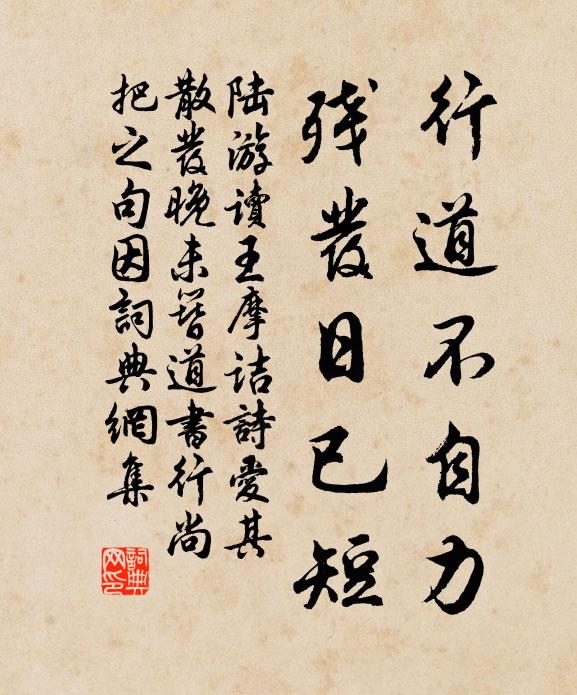 行道不自力
残發日已短
陆游讀王摩诘詩愛其
散發晚未簪道書行尚
把之句因詞典網集
詞典
网印